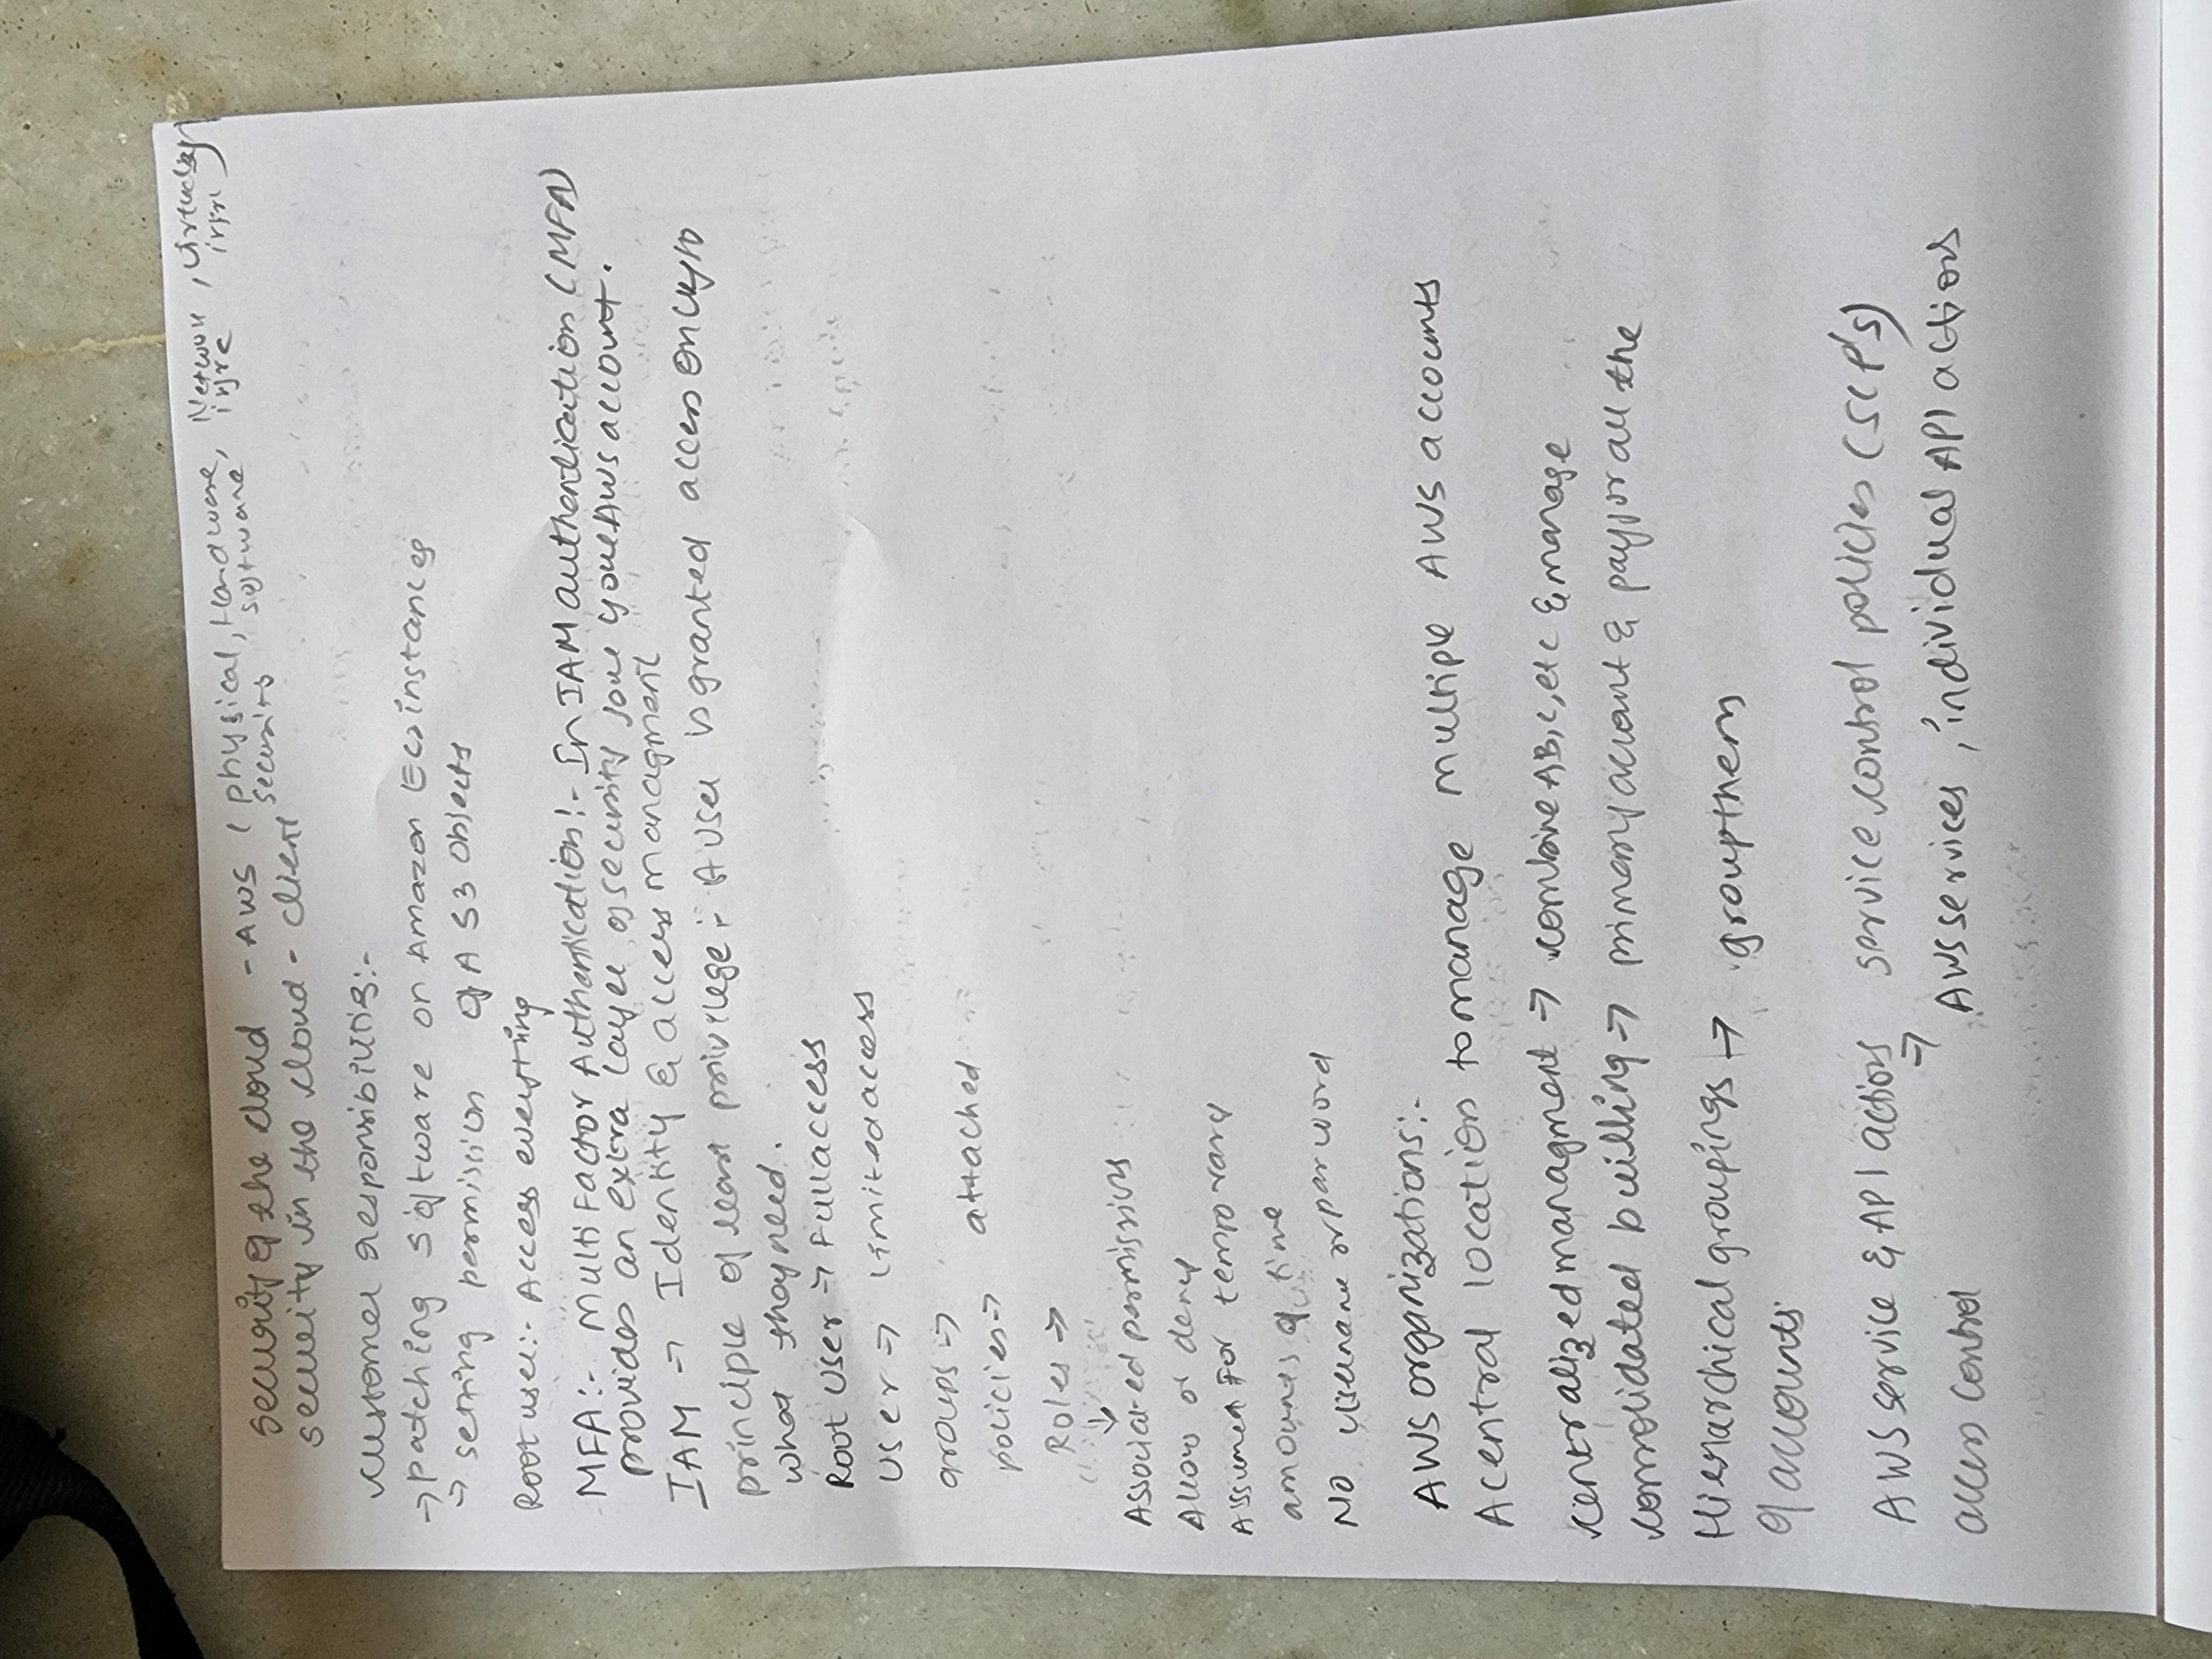 security of the cloud - AWS ( physical security, Hardware software, Network infra, virtualizn infra )
security in the cloud - client
customer responsibilities:-
→ patching software on Amazon EC2 instances
→ setting permission of A S3 objects
Root user:- Access everything
MFA:- Multi Factor Authentication:- In IAM authentication (MFA)
provides an extra layer of security for your AWS account.
IAM → Identity & access managment
principle of least privilege:- A user is granted access only to
what they need.
Root User → Full access
User → limited access
groups →
policies → attached
Roles →
↓
Associated permissions
Allow or deny
Assumed For temporary
amounts of time
NO username or password
AWS organizations:-
A central location to manage multiple AWS accounts
centralized managment → combine A,B,C,etc & manage
consolidated builling → primary account & pay for all the
Hierarchical groupings → group them
of accounts
AWS service & API actions service control policies (SCP's)
access control → AWS services, individual API actions